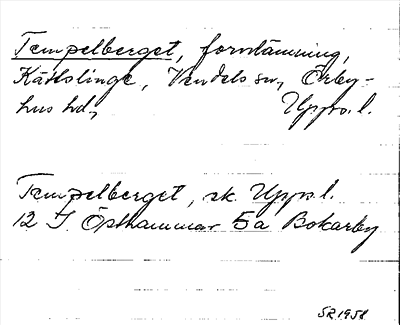 Tempelberget, fornlämning,
Kättslinge, Vendels sn, Örby-
hus hd, Upps. l.
Tempelberget, sk. Upps. l.
12 I. Östhammar 5a Bokarby
SR 1958